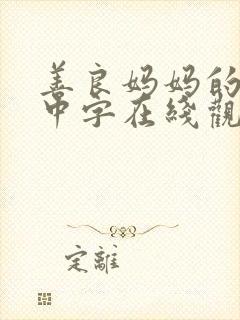 善良妈妈的
中字在线觀
定離